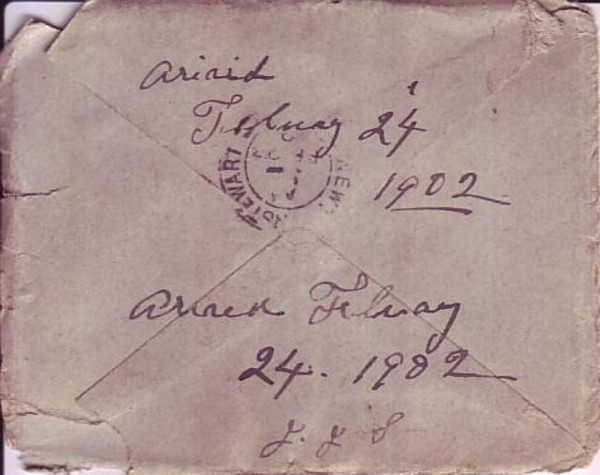 Arived
Febuay 24
1902
STEWART NEW
Arived Febuay
24. 1902
J. J. S